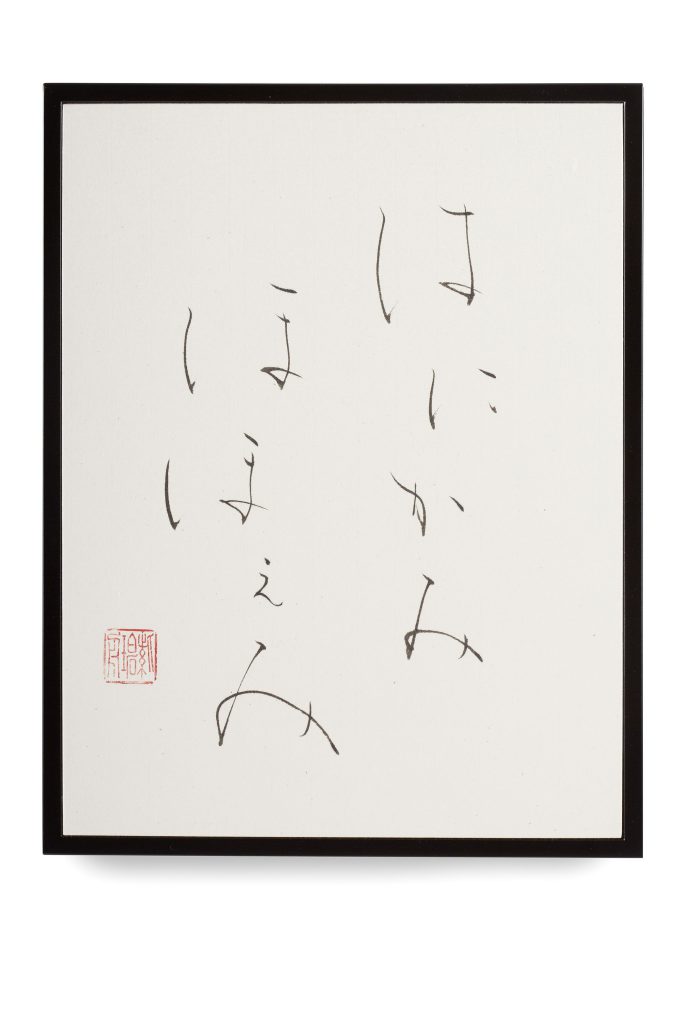 はにかみ
ほほえみ